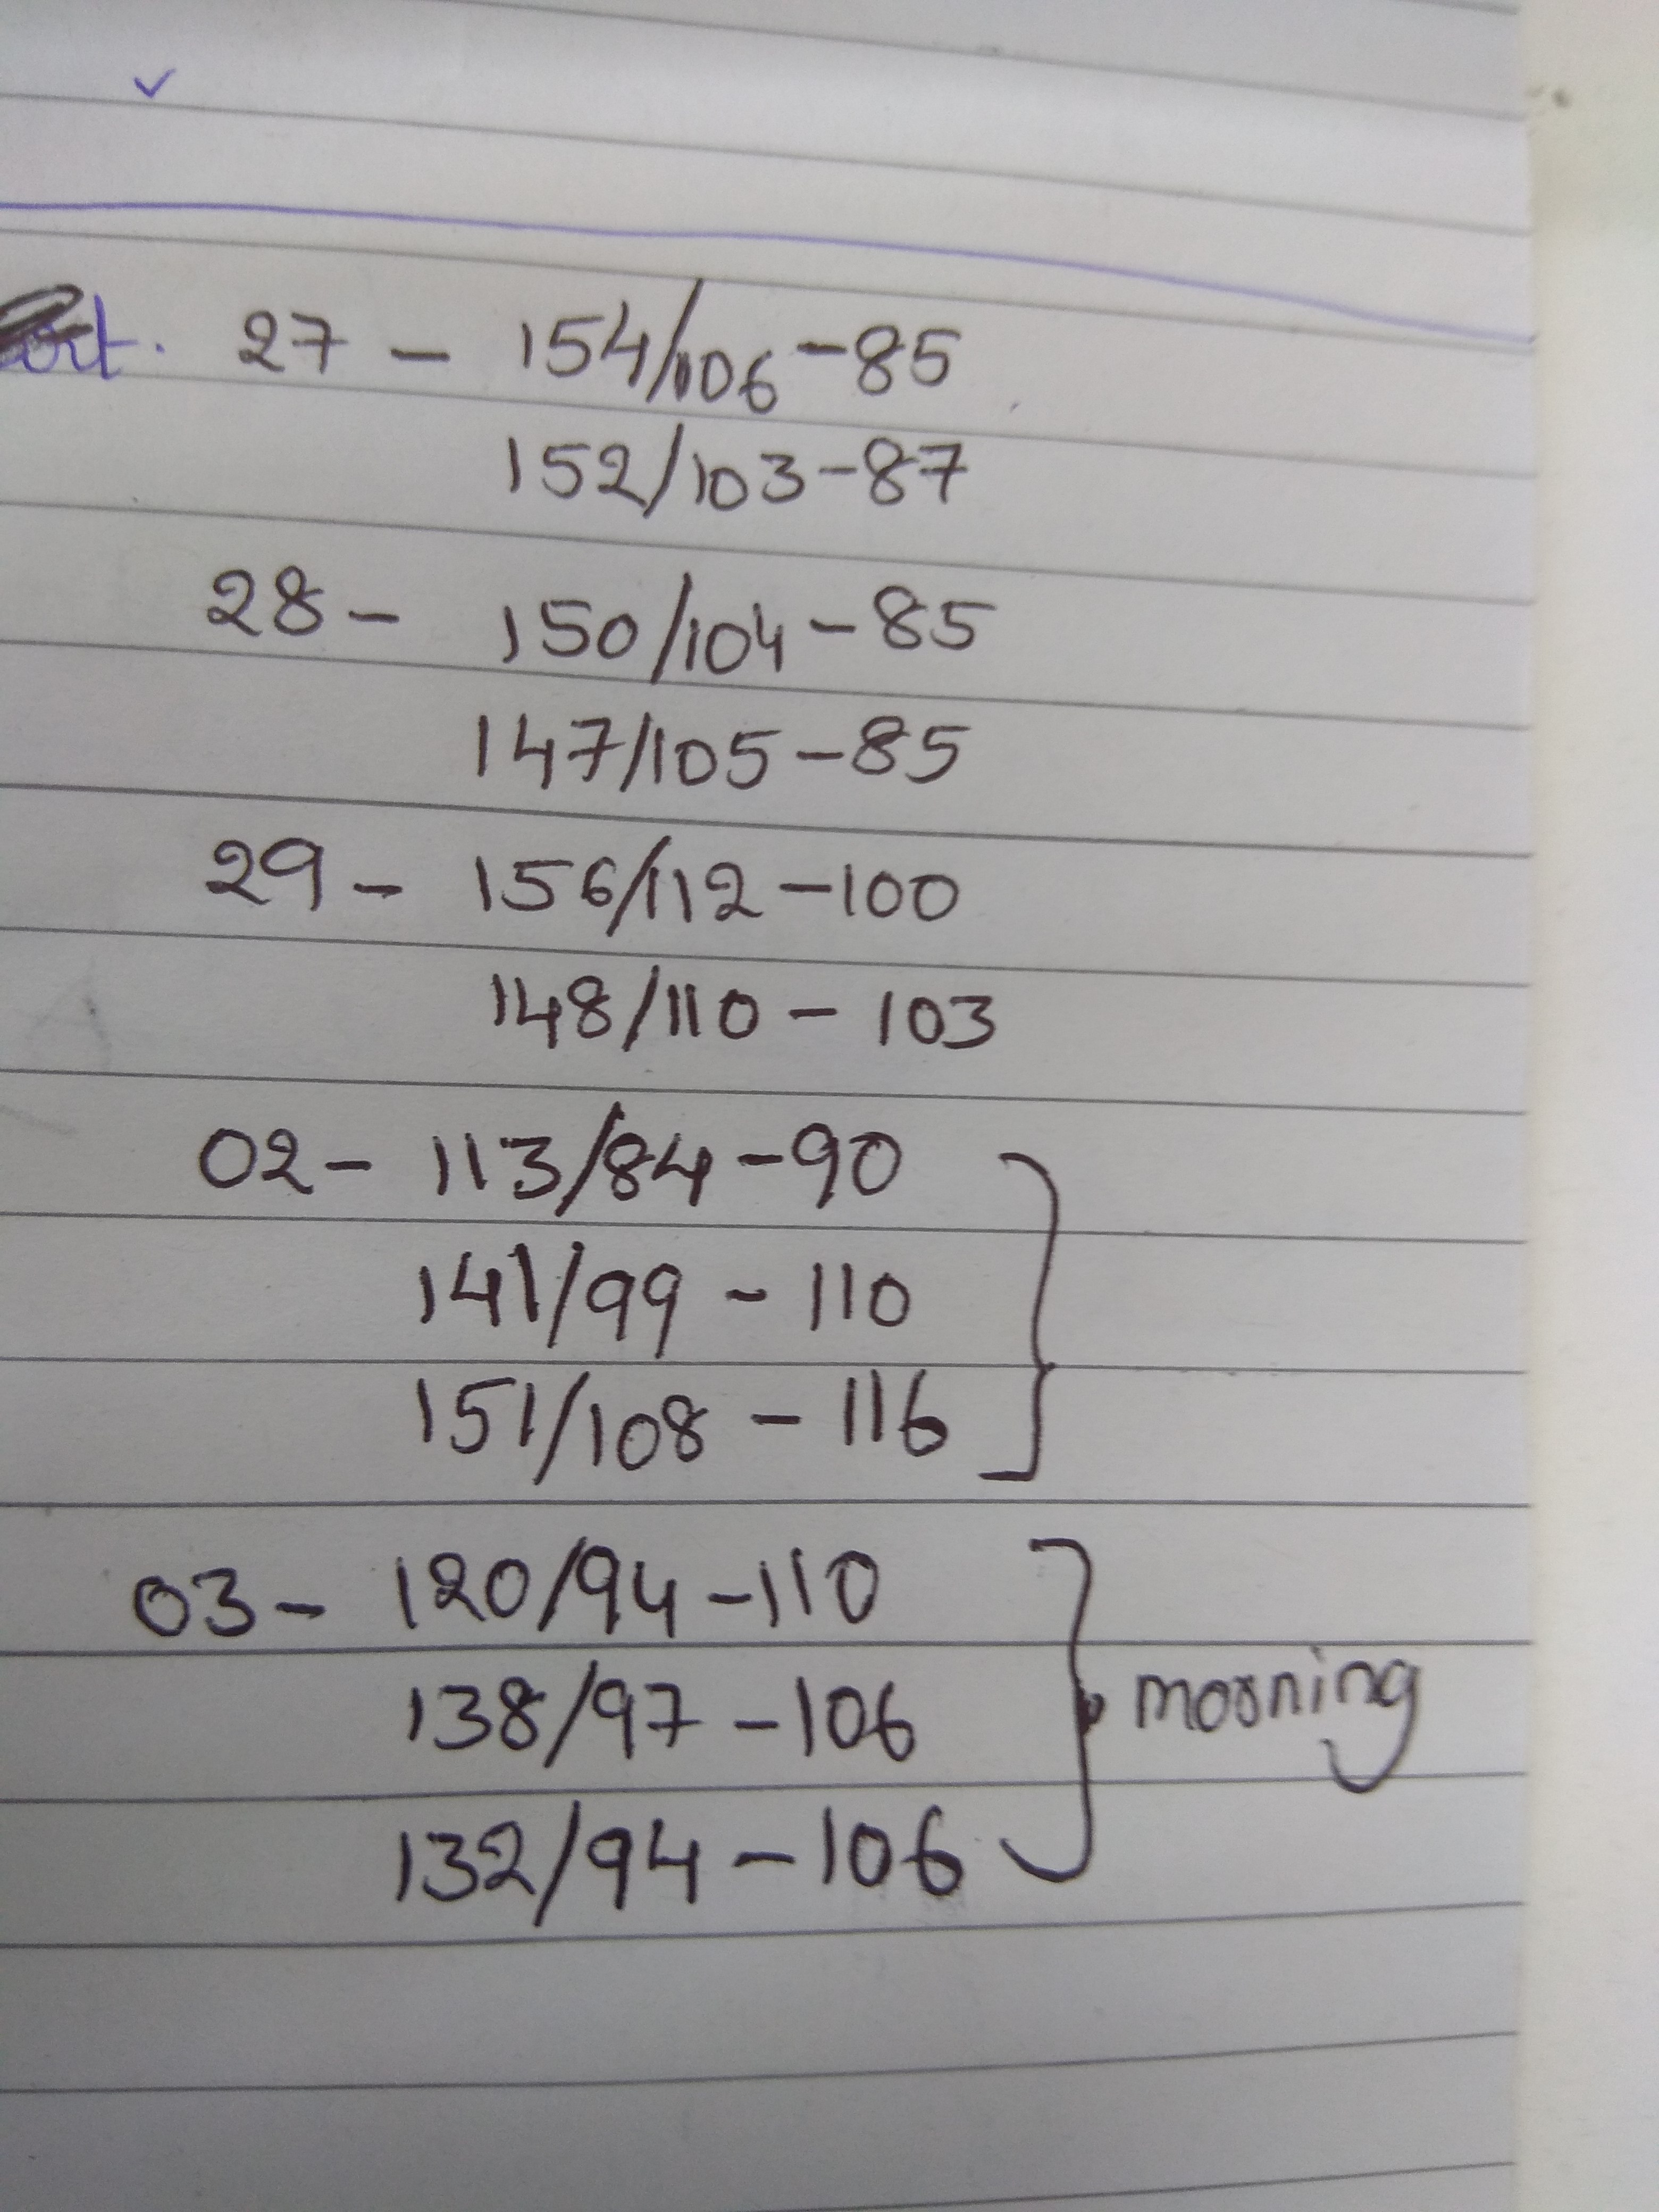 27 - 154/106 - 85
152/103 - 87
28 - 150/104 - 85
147/105 - 85
29 - 156/112 - 100
148/110 - 103
02 - 113/84 - 90
141/99 - 110
151/108 - 116
03 - 120/94 - 110
138/97 - 106
morning
132/94 - 106